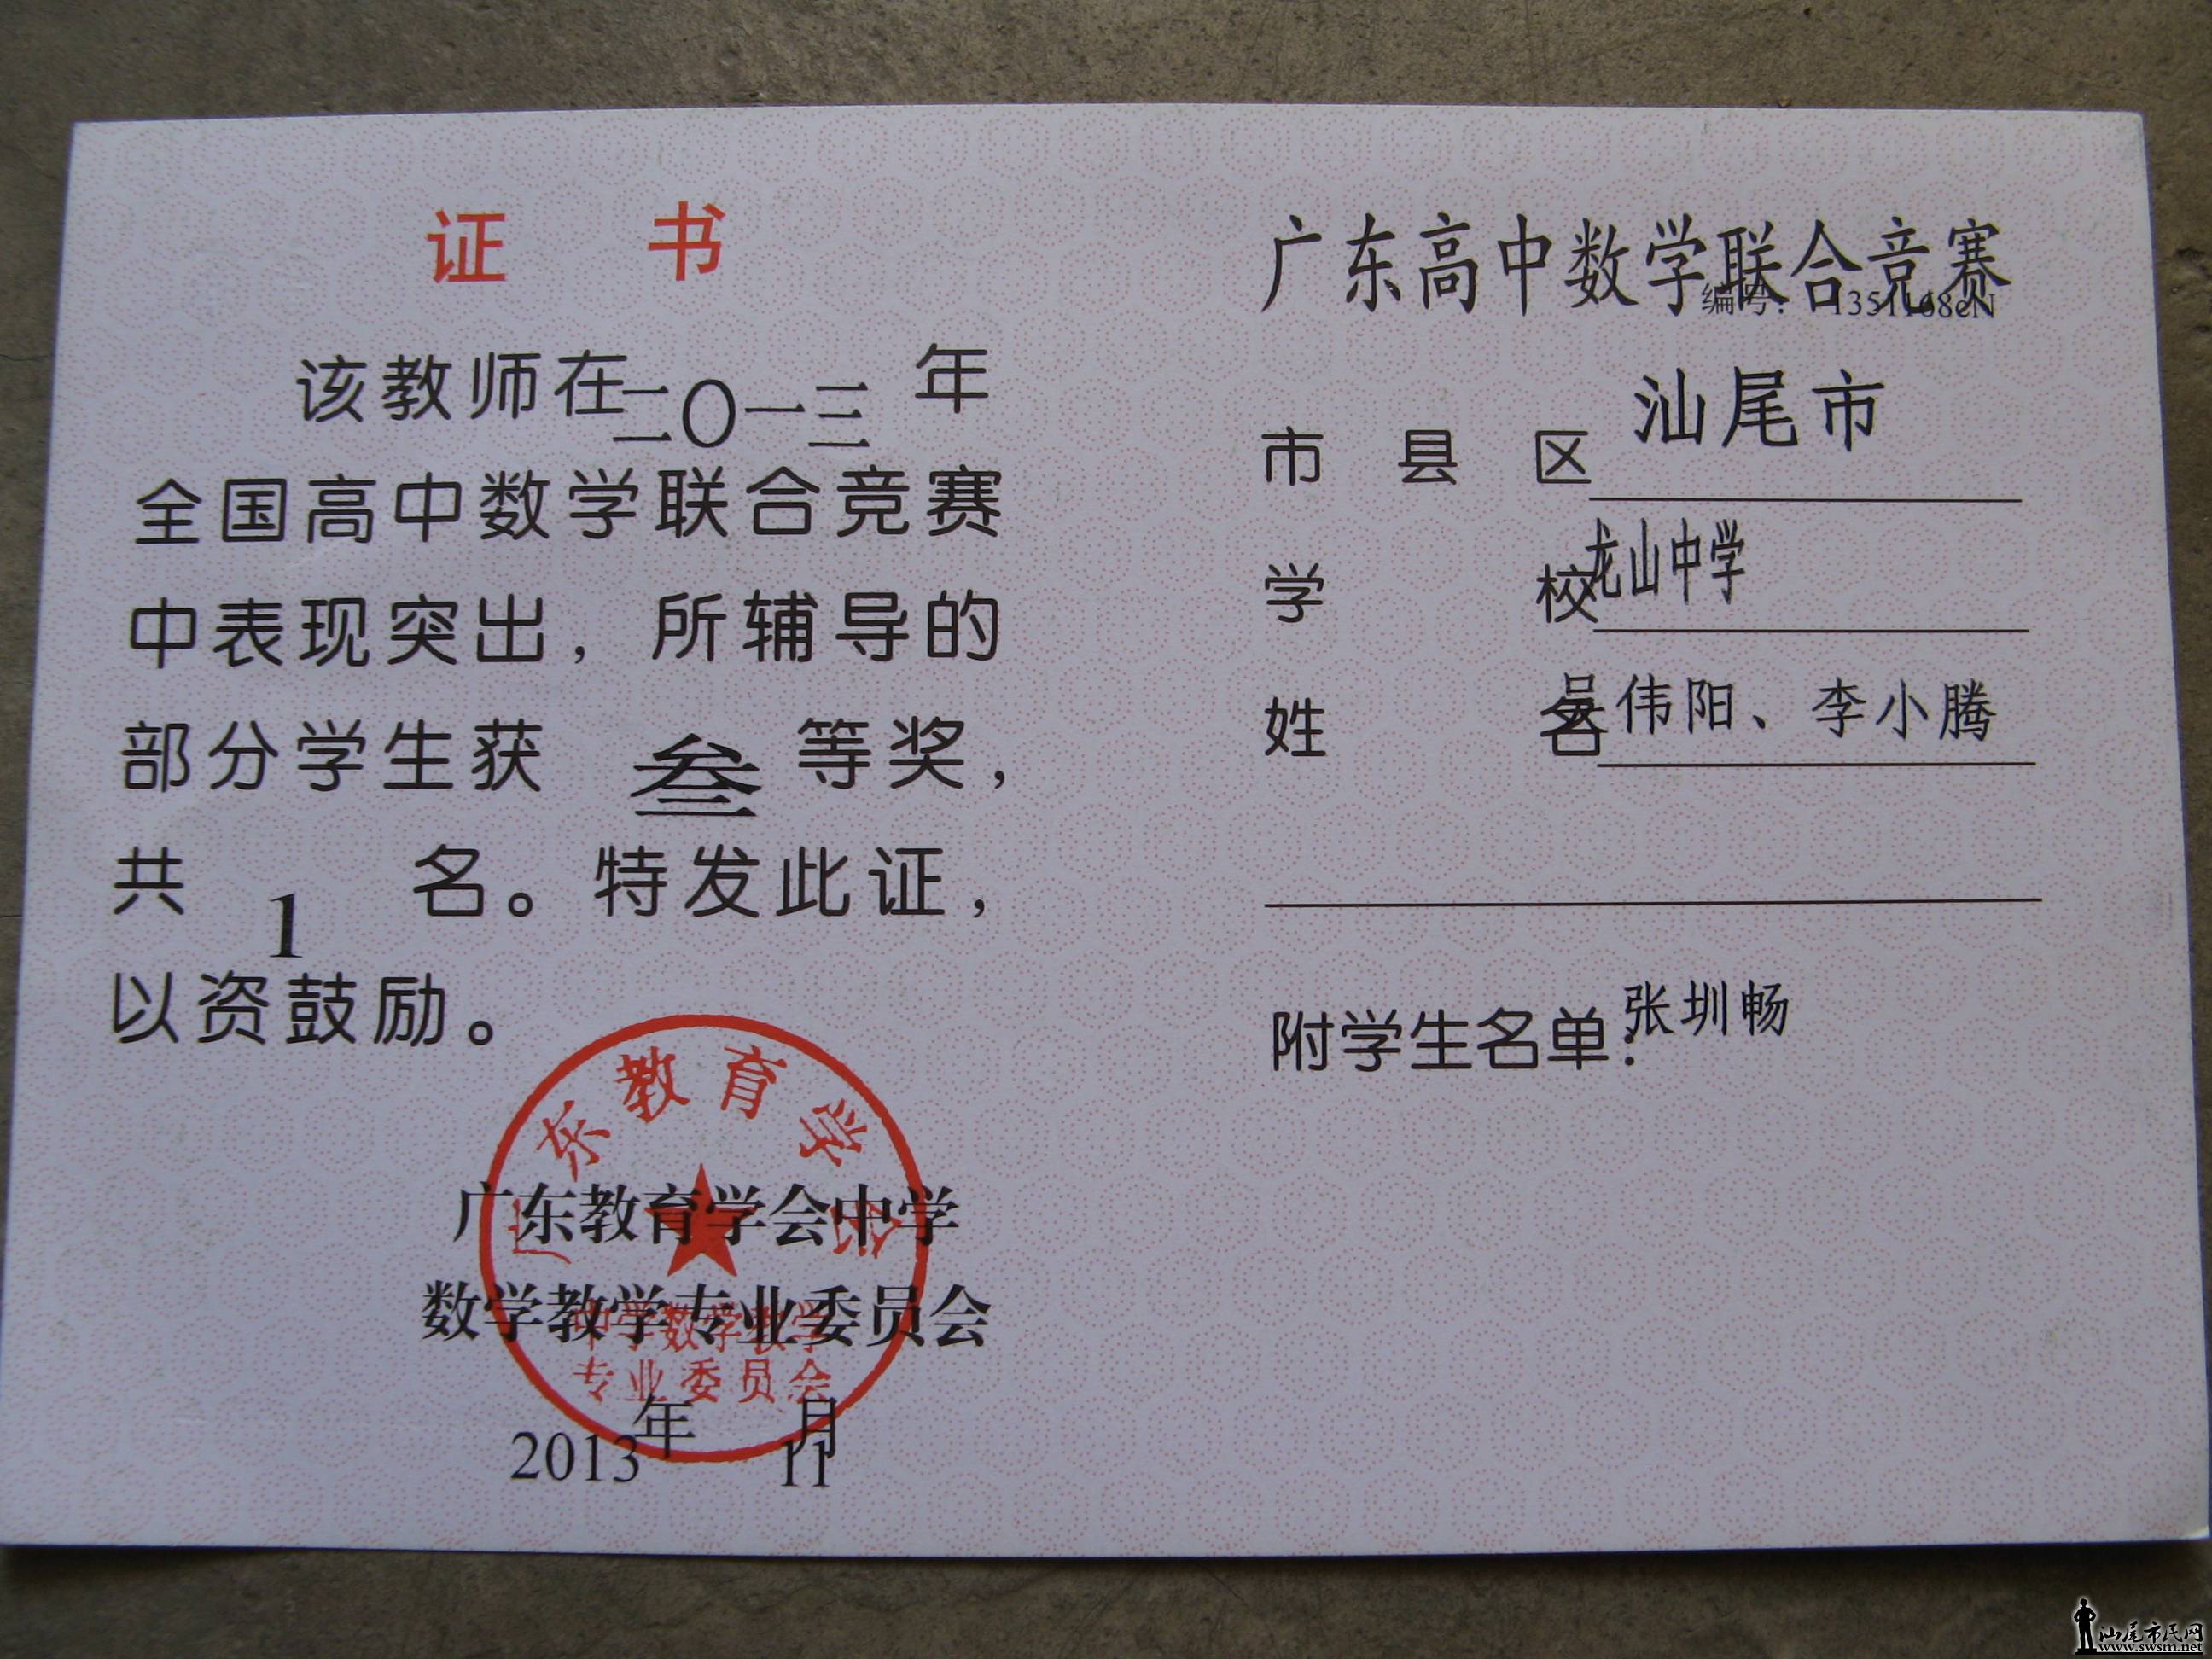 证 书
该教师在二〇一三年
全国高中数学联合竞赛
中表现突出，所辅导的
部分学生获 叁 等奖，
共 1 名。特发此证，
以资鼓励。
广东教育学会
广东教育学会中学
数学教学专业委员会
中学数学教学
专业委员会
2013年 11月
广东高中数学联合竞赛
编号：
市 县 区 汕尾市
学 校 龙山中学
姓 名 吴伟阳、李小腾
附学生名单：张圳畅
汕尾市民网
www.swsm.net